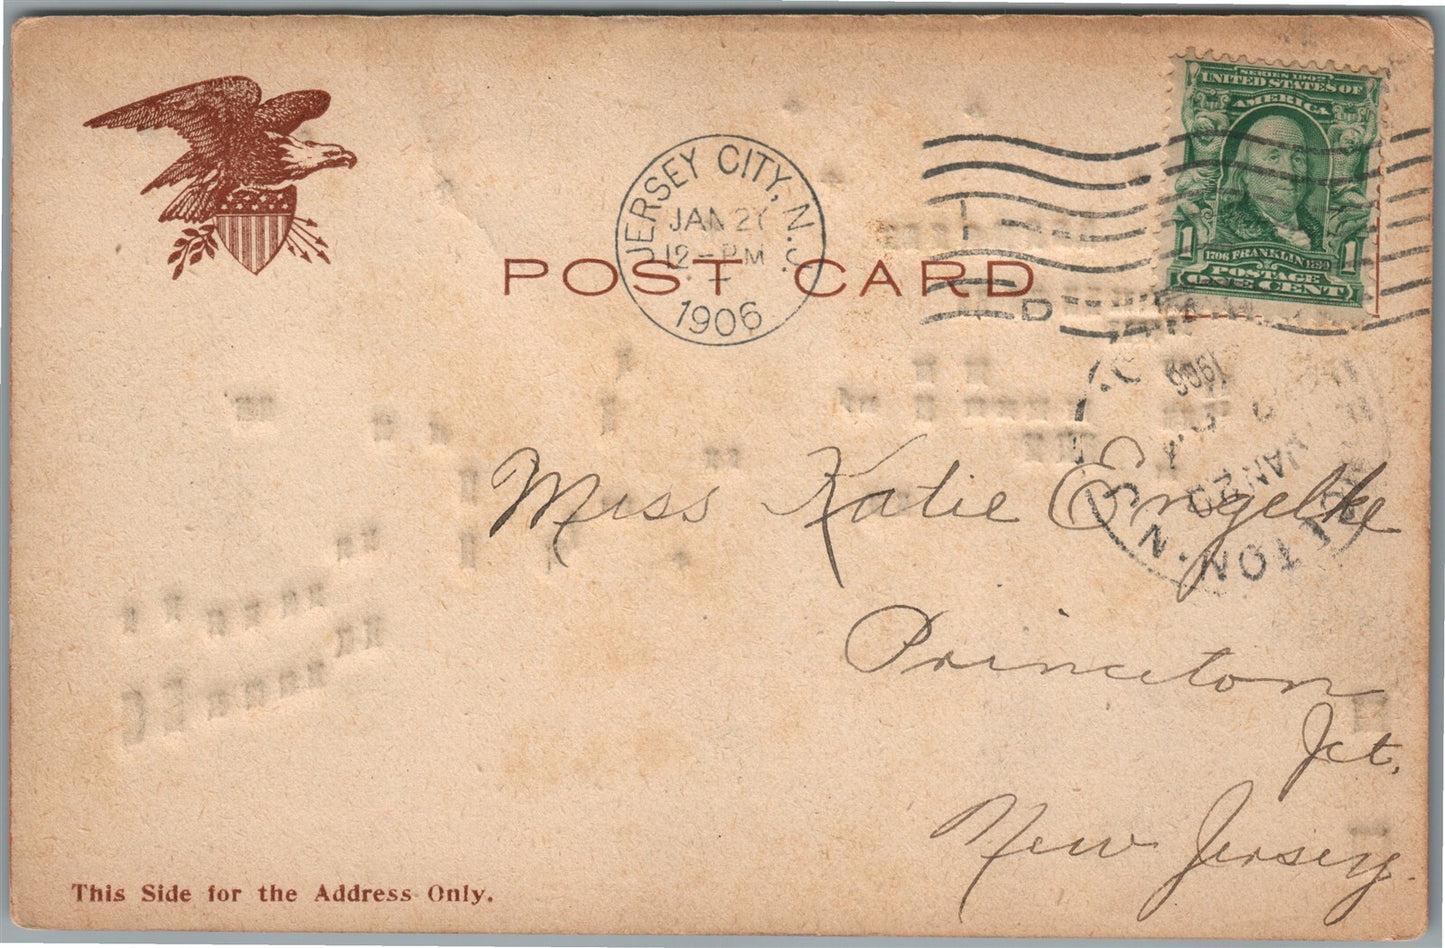 SERIES 1902
UNITED STATES OF
AMERICA
1 1
FRANKLIN
POSTAGE
ONE CENT
JERSEY CITY, N.J.
JAN 27
12 - PM
1906
POST CARD
D
1906
JAN 2
N.J.
Miss Katie Engelke
Princeton
Jct.
New Jersey.
This Side for the Address Only.